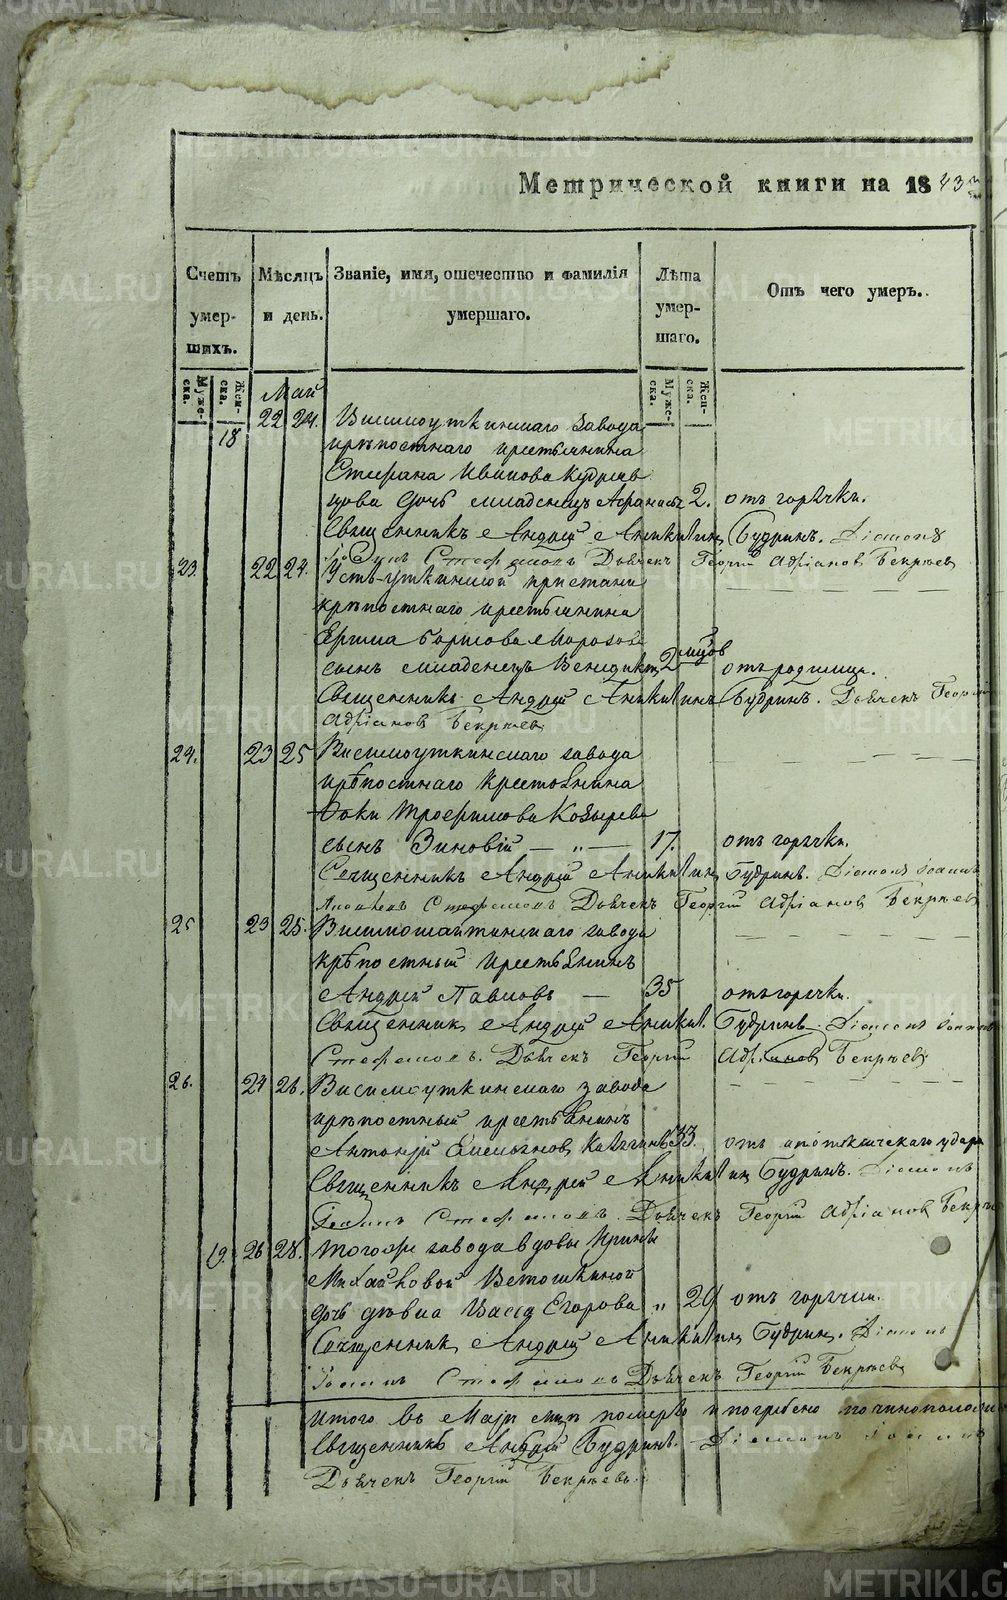 METRIKI.GASU-URAL.RU
Метрической книги на 1843
Счетъ умер- шихъ.
Мѣсяцъ и день.
Званіе, имя, отечество и фамилія умершаго.
Лѣта умер- шаго.
Отъ чего умеръ.
Муже- ска.
Жен- ска.
Муже- ска.
Жен- ска.
Май
18 22 24. Висимоуткинскаго завода
крѣпостнаго крестьянина
Стефана Иванова
дочь младенецъ 2. отъ горячки.
Священникъ Андрей Аникитинъ Будринъ. Діаконъ
Дьячекъ Георгій Адріановъ Бекрѣевъ
23. 22 24. Усть-уткинской пристани
крѣпостнаго крестьянина
Борисова Морозова
сынъ младенецъ Венедиктъ 2 мцов отъ родимца.
Священникъ Андрей Аникитинъ Будринъ. Дьячекъ Георгій
Адріановъ Бекрѣевъ
24. 23 25 Висимоуткинскаго завода
крѣпостнаго крестьянина
Фоки Трофимова Козырева
сынъ Зиновій — „ — 17. отъ горячки.
Священникъ Андрей Аникитинъ Будринъ. Діаконъ Іоаннъ
Дьячекъ Георгій Адріановъ Бекрѣевъ
25 23 25. Висимошайтанскаго завода
крѣпостный крестьянинъ
Андрей Павловъ — 35 отъ горячки.
Священник Андрей Аникит. Будринъ. Діаконъ Іоаннъ
Дьячекъ Георгій Адріановъ Бекрѣевъ
26. 24 26. Висимоуткинскаго завода
крѣпостный крестьянинъ
Антоній Емельянов 33. отъ апоплексическаго удара
Священникъ Андрей Аникитин Будринъ. Діаконъ
Іоаннъ Дьячекъ Георгій Адріановъ Бекрѣевъ
19. 26 28. Тогоже завода вдовы Ирины
Михайловой Ветошкиной
дочь дѣвка Васса Егорова „ 29 отъ горячки.
Священник Андрей Аникитин Будрин. Діаконъ
Іоаннъ Дьячекъ Георгій Бекрѣевъ
Итого въ Маіѣ мцѣ померло и погребено по чиноположе
Священникъ Андрей Будринъ. Діаконъ Іоаннъ
Дьячекъ Георгій Бекрѣевъ.